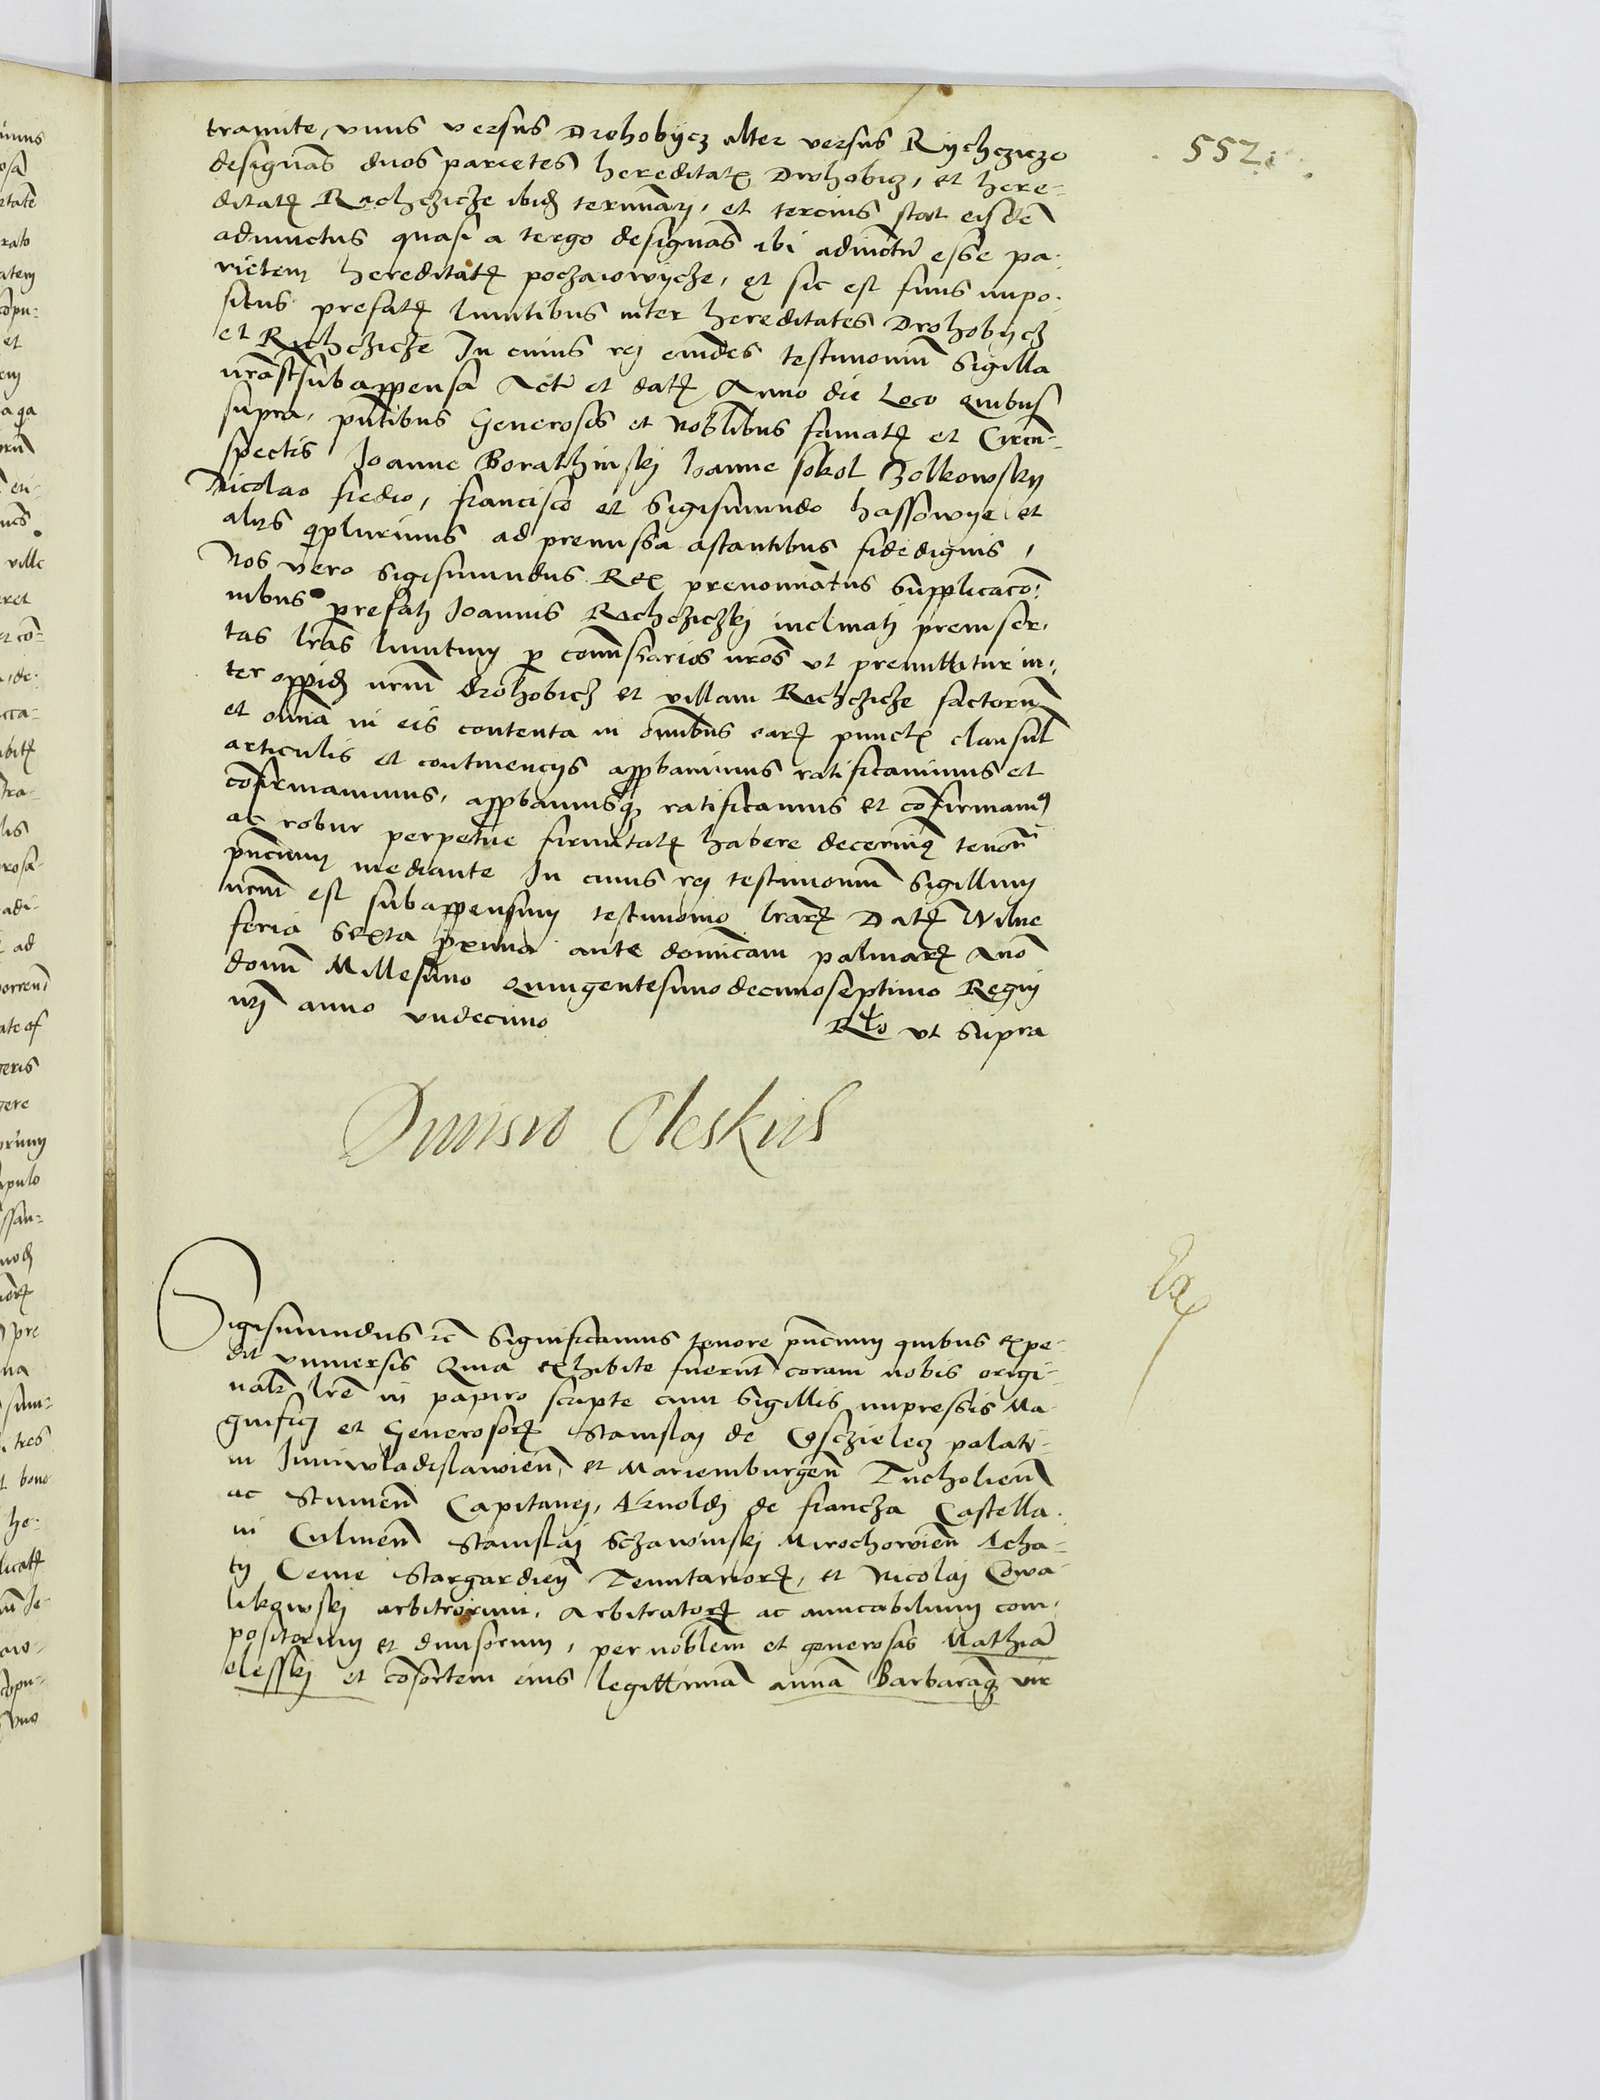 552
tramite, unus versus Drohobycz alter versus Rychczicze
designans duos parietes hereditatis Drohobicz, et here-
ditatis Richczicze ibidem terminari, et tercius stat eisdem
adiunctus quasi a tergo designans ibi adiunctum esse pa-
rietem hereditatis poczaiowycze, et sic est finis impo-
situs prefatis limitibus inter hereditates Drohobycz
et Richczicze In cuius rei evidens testimonium Sigilla
nostra sunt subappensa Actum et datum Anno die Loco quibus
supra, presentibus Generosis et Nobilibus famatis et Circum-
spectis Joanne Borathinskj Joanne sokol Zolkowsky
Nicolao fredro, francisco et Sigismundo hassowye et
aliis quam plurimis ad premissa astantibus fidedignis,
Nos vero Sigismundus Rex prenominatus Supplicacio-
nibus prefati Joannis Richcziczkj inclinati preinser-
tas literas limitum per comissarios nostros ut premittitur in-
ter oppidum nostrum drohobicz et villam Richczicze factorum
et omnia in eis contenta in omnibus earum punctis clausulis
articulis et continenciis approbavimus ratificavimus et
confirmavimus, approbamusque ratificamus et confirmamus
ac robur perpetue firmitatis habere decernimus tenore
presencium mediante In cuius rei testimonium Sigillum
nostrum est subappensum testimonio literarum Datum Wilne
feria Sexta proxima ante dominicam palmarum Anno
domini Millesimo Quingentesimo decimoseptimo Regni
nostri anno undecimo Relatio ut Supra
Divisio Oleskich
Sigismundus etc Significamus tenore presencium quibus expe-
dit universis Quia exhibite fuerunt coram nobis origi-
nales litere in papiro scripte cum Sigillis impressis Ma-
gnifici et Generosorum Stanislaj de Cosczielecz palati-
ni Juniwladislawiensis, et Mariemburgensis Tucholiensis
ac Stumensis Capitanej, Arnoldj de francza Castella-
ni Culmensis Stanislaj Sczawinskj Mirochowiensis Acha-
tij Ceme Stargardiensis Tenutariorum, et Nicolaj Cowa
likowskj arbitrorum, Arbitratorum ac amicabilium com-
positorum et divisorum, per nobilem et generosas Mathiam
elesskj et consortem eius legittimam annam Barbaramque vir